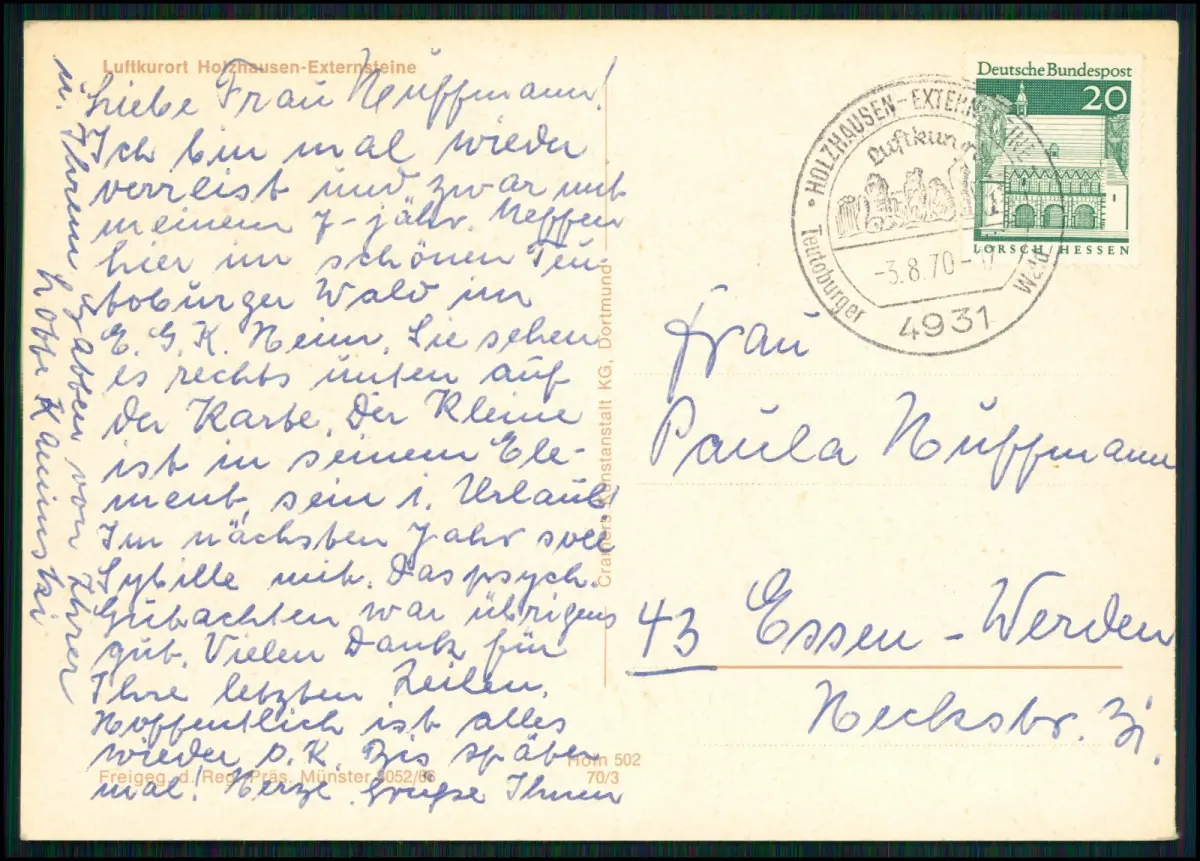 Luftkurort Holzhausen-Externsteine
Liebe Frau Nuffmann!
Ich bin mal wieder
verreist und zwar mit
meinem 7-jähr. Neffen
hier im schönen Teu-
toburger Wald im
E. G. K. Heim. Sie sehen
es rechts unten auf
der Karte. Der Kleine
ist in seinem Ele-
ment, sein 1. Urlaub.
Im nächsten Jahr soll
Sybille mit. Das psych.
Gutachten war übrigens
gut. Vielen Dank für
Ihre letzten Zeilen.
Hoffentlich ist alles
wieder o.K. Bis später
mal! Herzl. Grüße Ihnen
u. Ihrem Gatten von Ihrer
Lotte Kaminski
Freigeg. d. Reg. Präs. Münster 4052/66
Hom 502
70/3
Cramers Kunstanstalt KG, Dortmund
HOLZHAUSEN-EXTERNSTEINE
Luftkurort
-3.8.70-17
Teutoburger Wald
4931
Deutsche Bundespost
20
LORSCH/HESSEN
Frau
Paula Nuffmann
43 Essen-Werden
Neckstr.